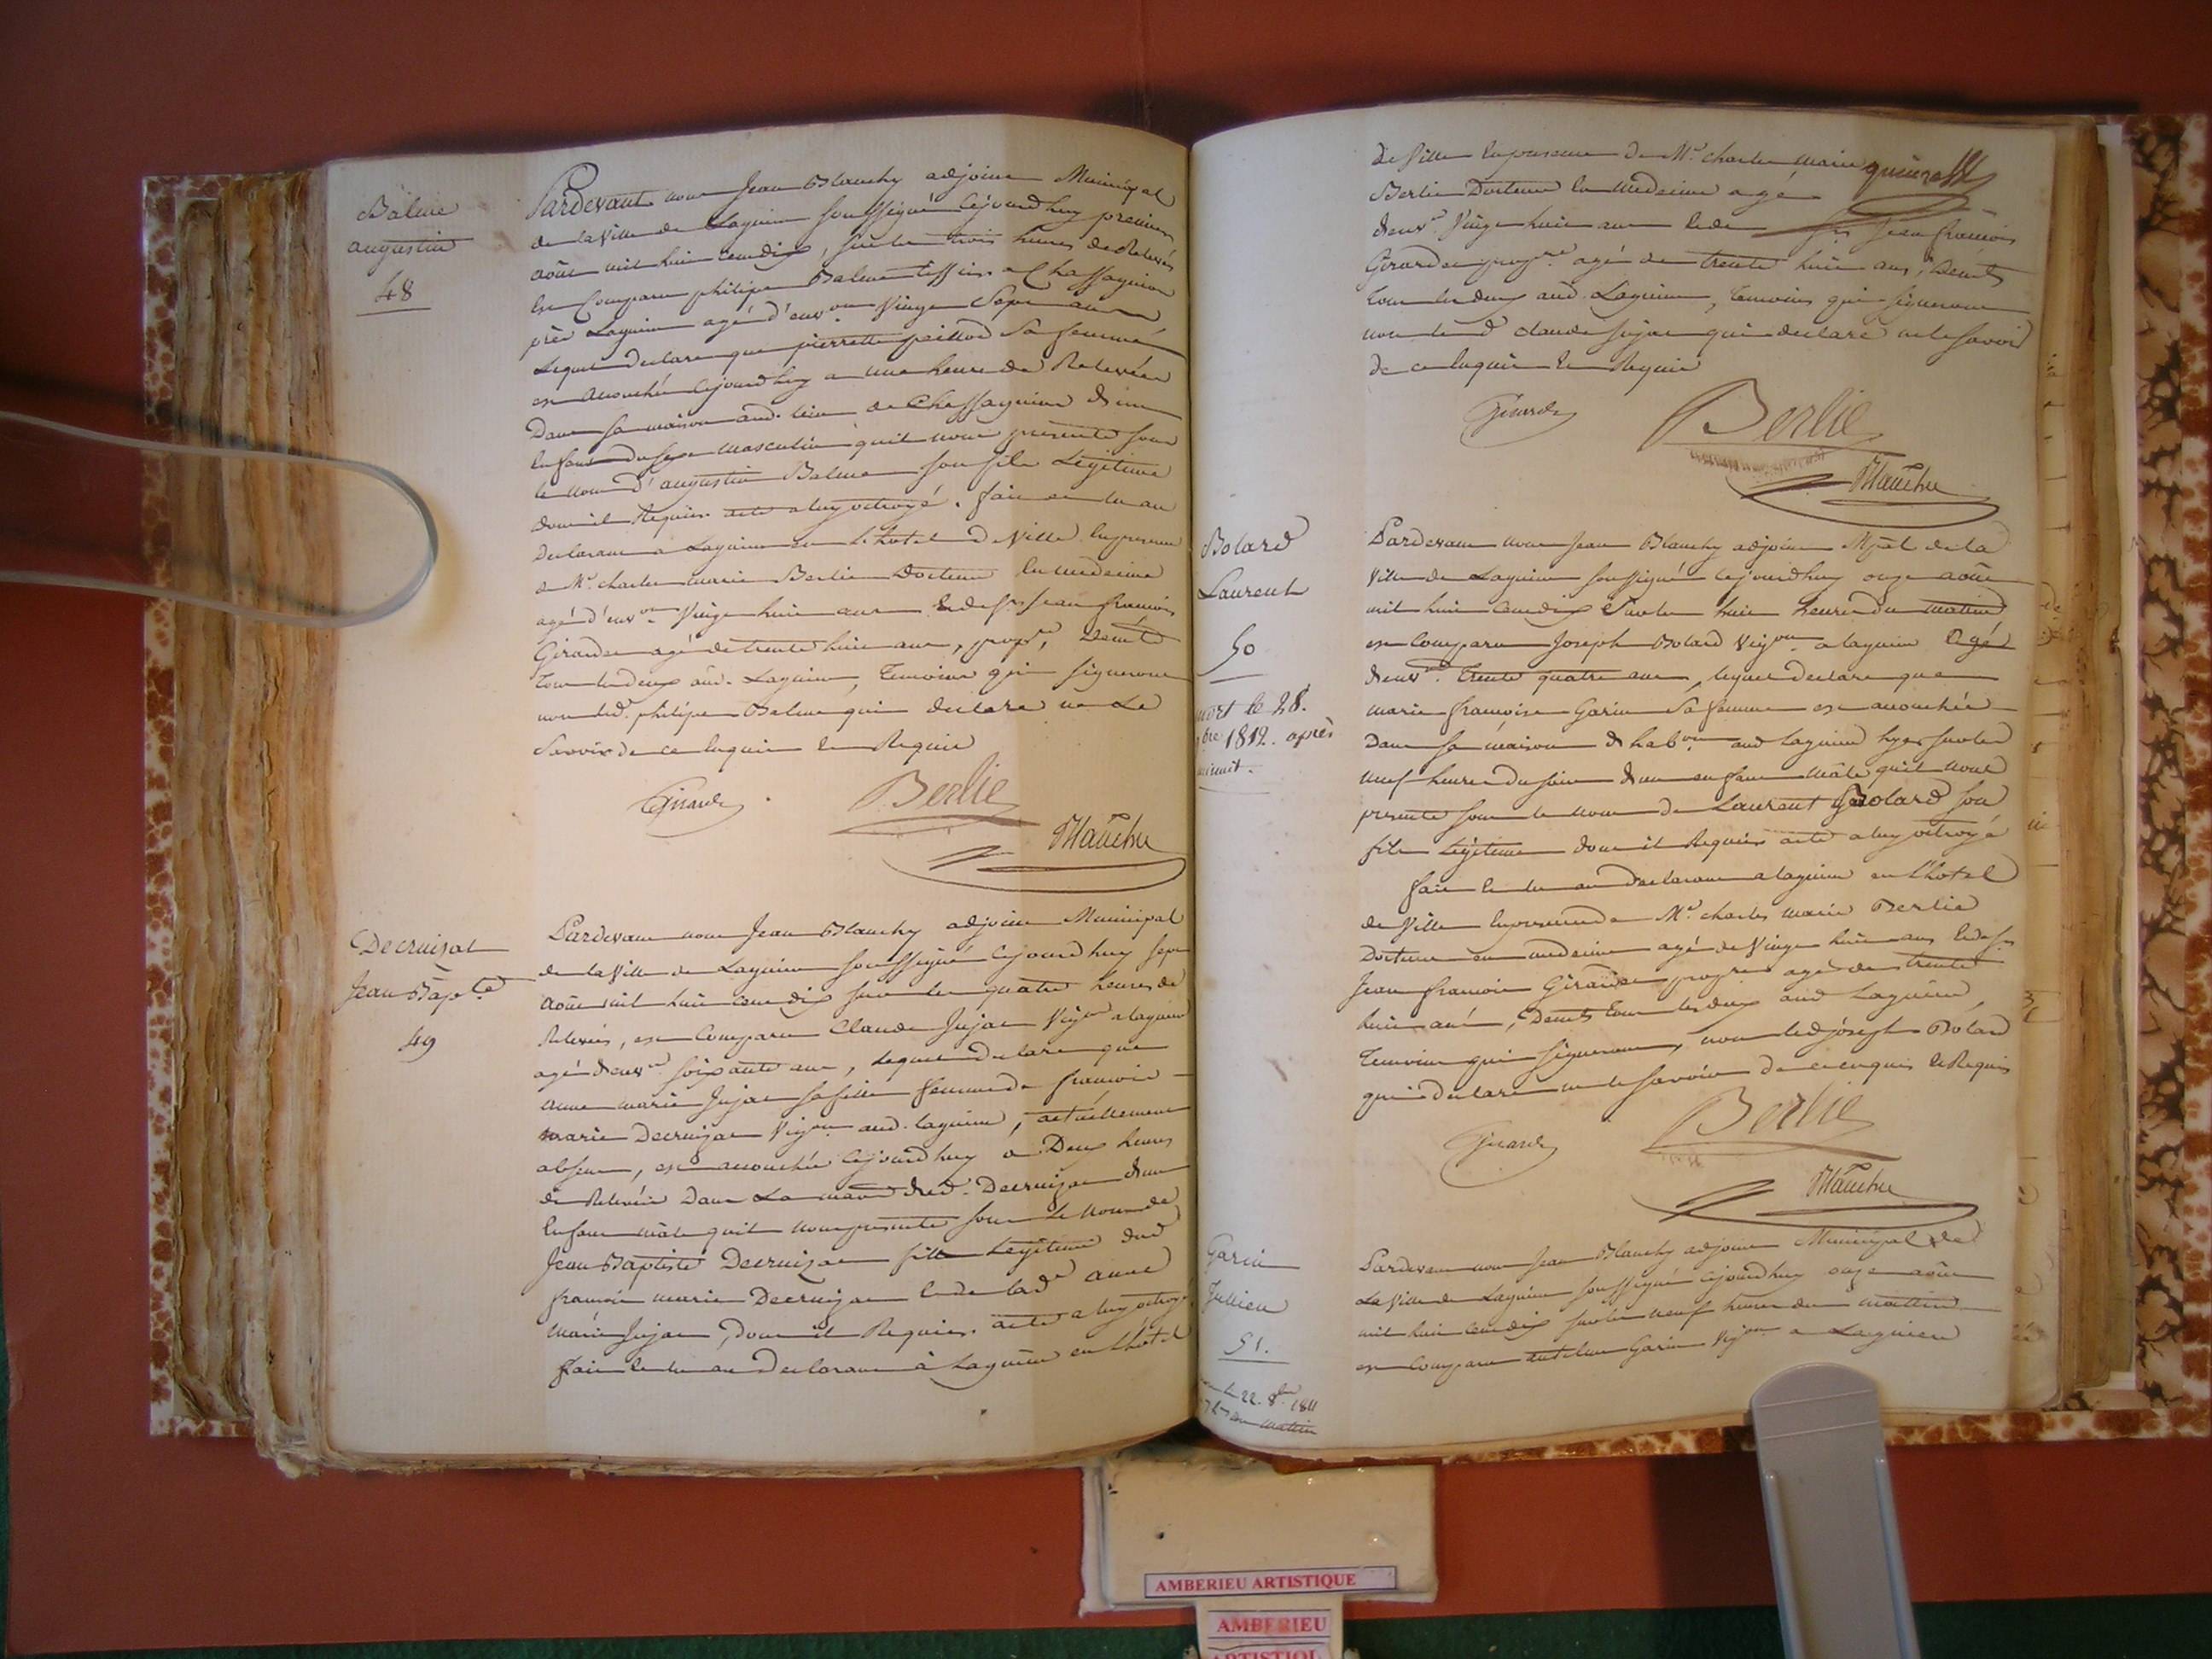 Balme
augustin
48
Pardevant nous Jean Blanchy adjoint Municipal
de la Ville de Lagnieu soussigné cejourdhuy premier
août mil huit cent dix, sur les trois heures de Relevée
est Comparu philipe Balme tissier a Chassagnieu
près Lagnieu agé d'env.on Vingt Sept ans
Lequel declare que pierrette paillod Sa femme
est accouchée cejourdhuy a une heure de Relevée
Dans sa maison aud. lieu de Chassagnieu d'un
Enfant du sexe masculin qu'il nous presente sous
le nom d'augustin Balme son fils Légitime
dont il Requiert acte a luy octroyé. fait et lu au
Declarant a Lagnieu en l'hotel de Ville en presence
de Mr. charles marie Berlie Docteur En medecine
agé d'env.on Vingt huit ans & de Sr. Jean françois
Girardet agé de trente huit ans, prop.re, Demts
Tous les deux aud. Lagnieu, Temoins qui signeront
non led. philipe Balme qui declare ne Le
Savoir de ce Enquis et Requis
Girardet
Berlie
Blanchy
Decruizat
Jean Bap.te
49
Pardevant nous Jean Blanchy adjoint Municipal
de la Ville de Lagnieu soussigné cejourdhuy sept
Août mil huit cent dix sur les quatre heures de
Relevée, est Comparu Claude Jujat Vig.on a lagnieu
agé d'env.on soixante ans, lequel declare que
Anne marie Jujat sa fille femme de francois
marie Decruizat Vig.on aud. lagnieu, actuellement
absent, est accouchée cejourdhuy a Deux heures
de Relevée Dans La maon dud. Decruizat d'un
Enfant mâle qu'il nous presente sous le nom de
Jean Baptiste Decruizat fils Legitime dud
francois marie Decruizat & de lad.e anne
marie Jujat, dont il Requiert acte a luy octroyé
fait et lu au Declarant à Lagnieu en l'hotel
de Ville en presence de Mr. charles marie
Berlie Docteur En Medecine agé
d'env.n Vingt huit ans & de Sr. Jean francois
Girardet prop.re agé de trente huit ans, Demts
Tous les deux aud. Lagnieu, Temoins qui signeront
non led. claude jujat qui declare ne le savoir
de ce Enquis et Requis
Girardet
Berlie
Blanchy
Bolard
Laurent
50
mort le 28.
bre 1812. après
minuit.
Pardevant nous Jean Blanchy adjoint Mpal de la
Ville de Lagnieu soussigné cejourdhuy onze août
mil huit cent dix Sur les huit heures du matin
est Comparu Joseph Bolard Vig.on a lagnieu agé
d'env.n Trente quatre ans, lequel declare que
marie françoise Garin Sa femme est accouchée
Dans sa maison d'hab.on aud Lagnieu hyer sur les
neuf heures du soir d'un enfant mâle qu'il nous
presente sous le nom de Laurent Bolard son
fils Légitime dont il Requiert acte a luy octroyé
fait et lu au Declarant a lagnieu en l'hotel
de Ville en presence de Mr. charles marie Berlie
Docteur en medecine agé de Vingt huit ans & de Sr
Jean francois Girardet propre agé de trente
huit ans, Demts tous les deux aud Lagnieu,
Temoins qui signeront, non led joseph Bolard
qui declare ne le savoir de ce enquis & Requis
Girardet
Berlie
Blanchy
Garin
Jullien
51.
le 22. 8bre 1811
du matin
Pardevant nous Jean Blanchy adjoint Municipal de
La Ville de Lagnieu soussigné cejourdhuy onze août
mil huit cent dix sur les neuf heures du mattin
est Comparu Garin Vig.on a Lagnieu
AMBERIEU ARTISTIQUE
AMBERIEU
ARTISTIQU